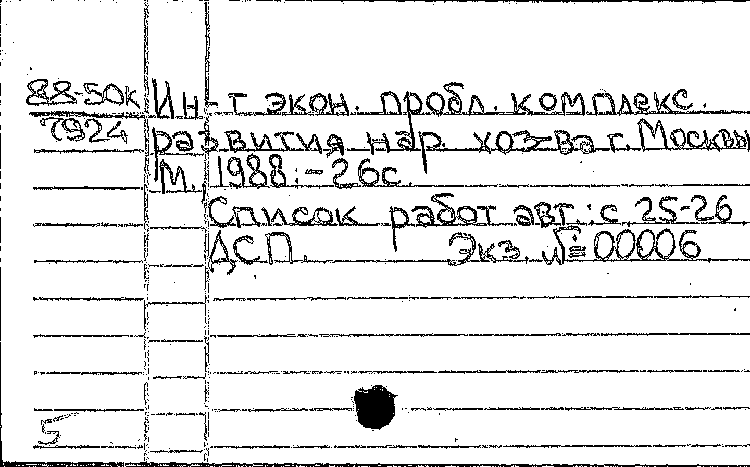 88-50к Ин-т экон. пробл. комплекс.
7924 развития нар. хоз-ва г. Москвы
М., 1988.-26с.
Список работ авт.: с. 25-26
ДСП. Экз. №00006
5